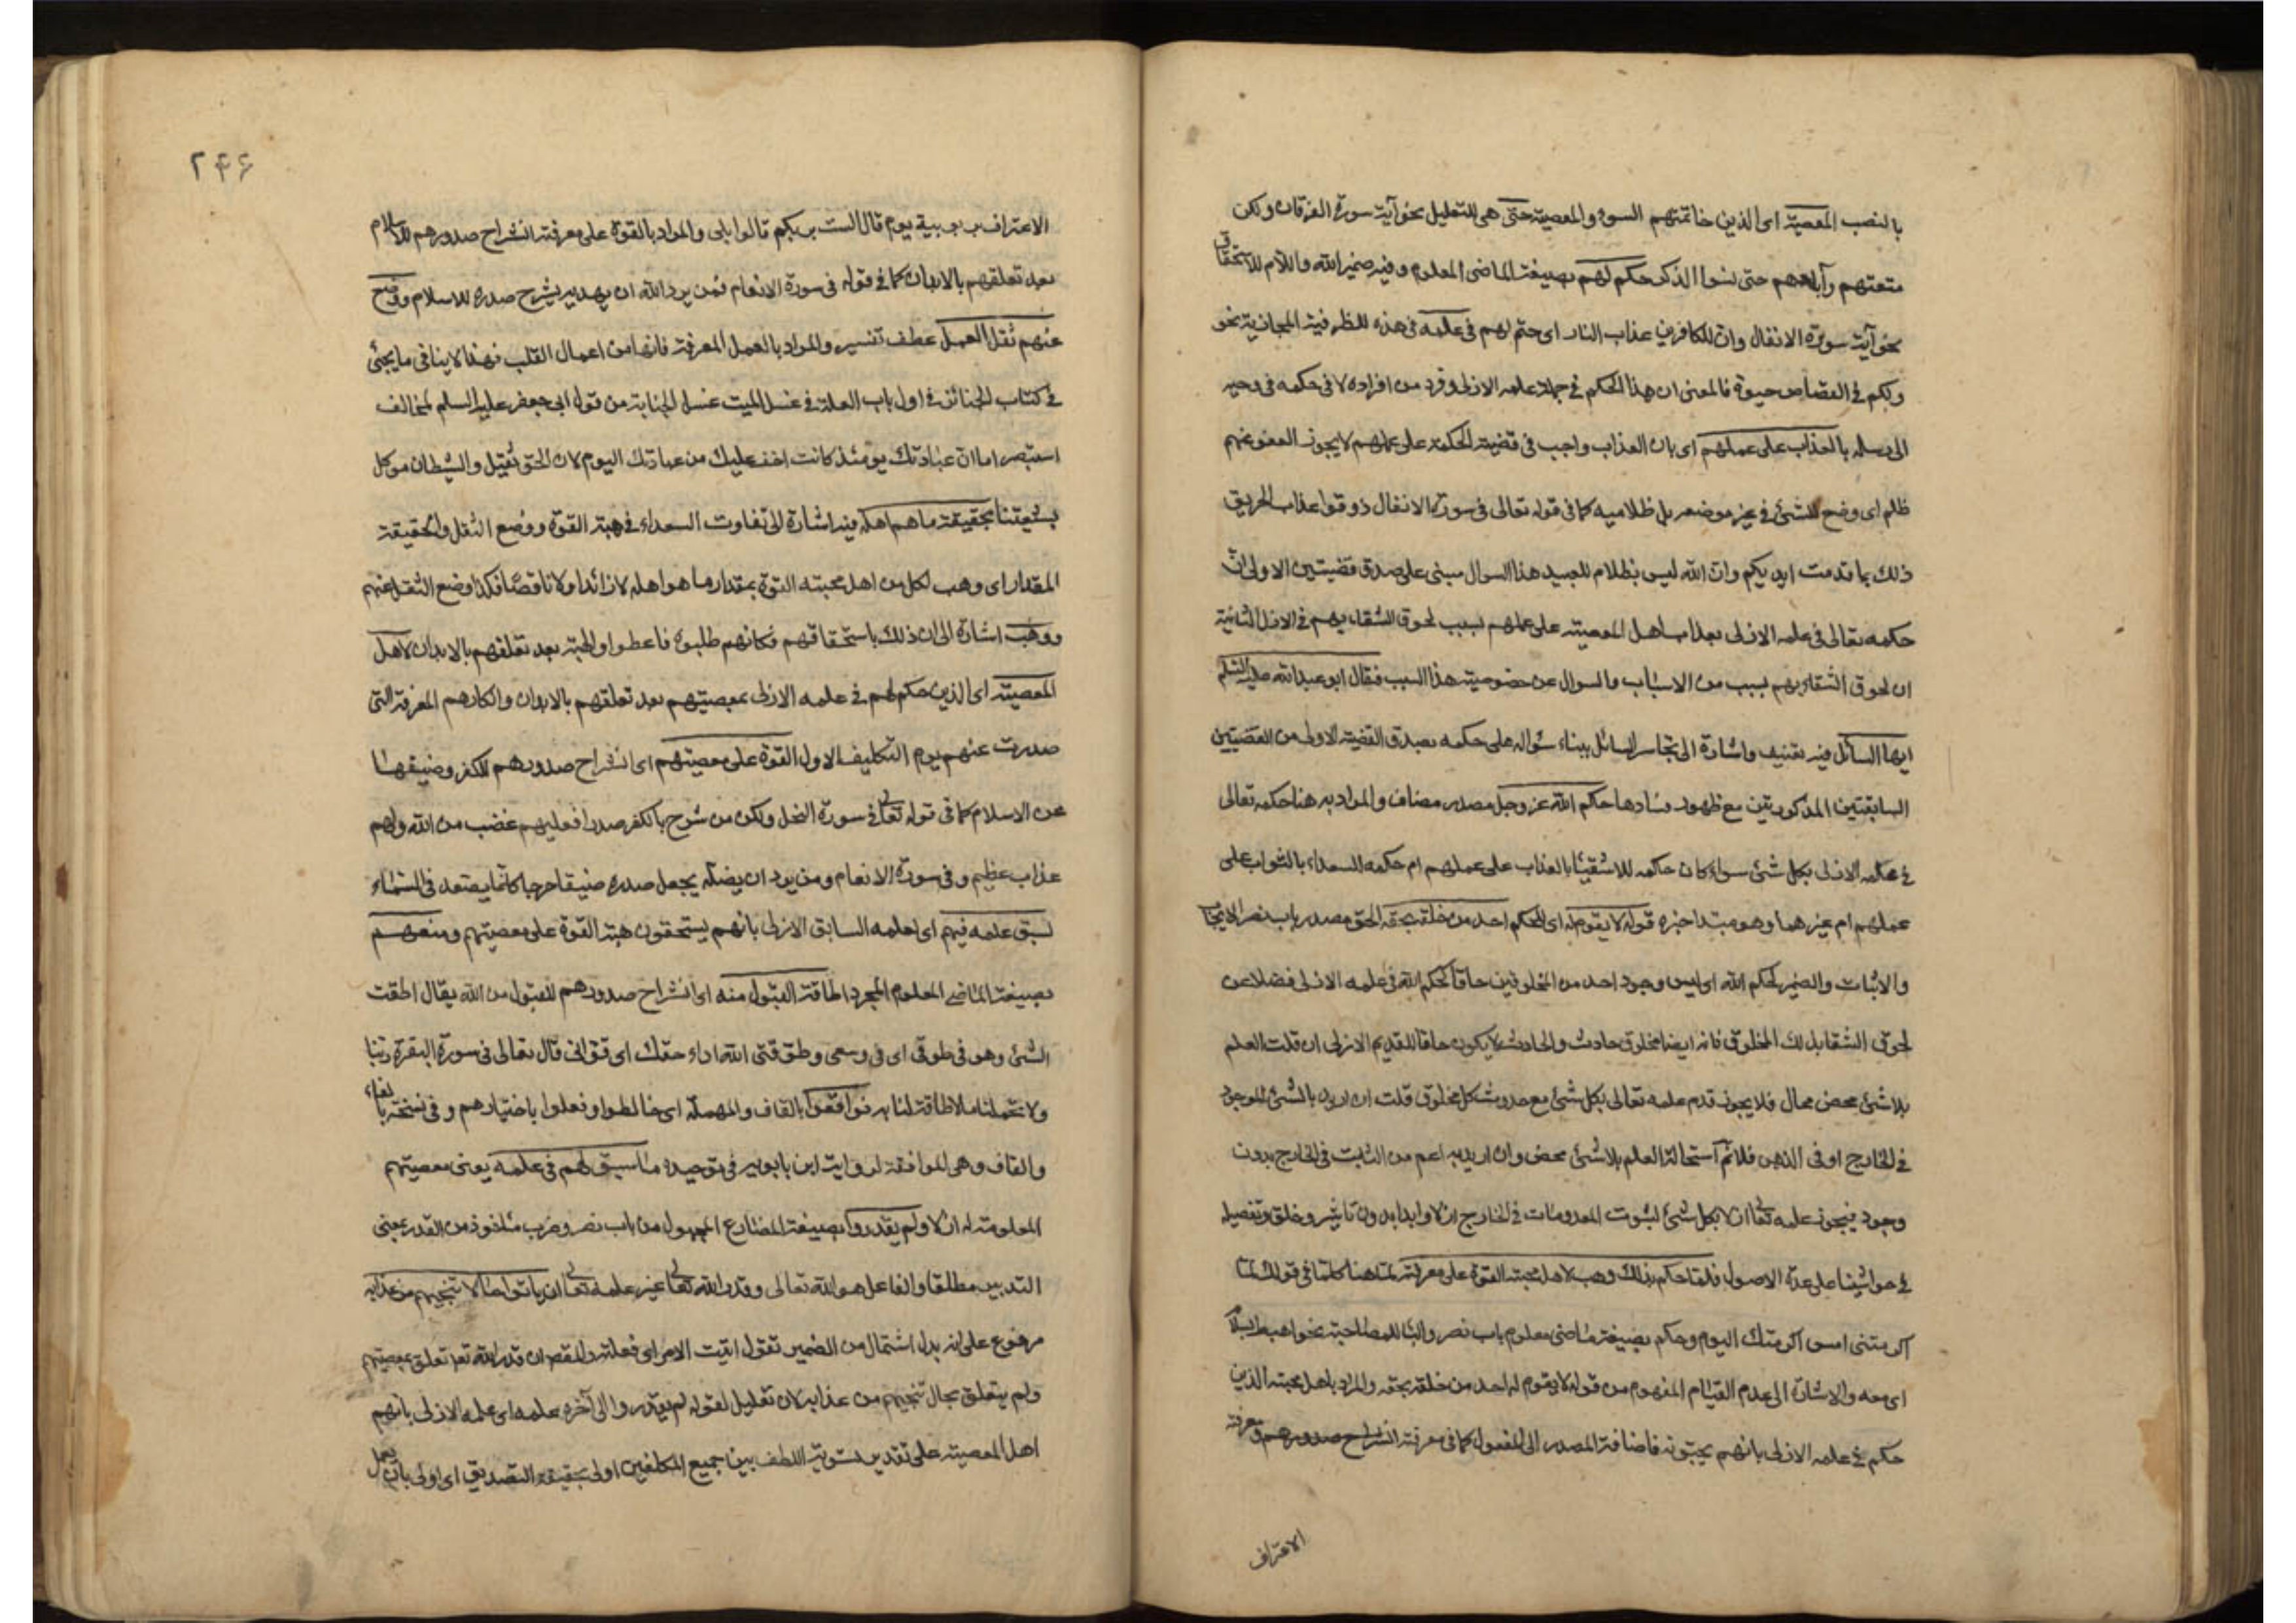 بالنصب المعصية اى الذين خاتمتهم السوء والمعصية حتى هى للتعليل نحو آية سورة الفرقان ولكن
متعتهم وآباءهم حتى نسوا الذكر حكم لهم بصيغة الماضى المعلوم وفيه ضمير الله واللام للاستحقاق
نحو آية سورة الانفال وان للكافرين عذاب النار اى حتم لهم فى علمه فى هذه للظرفية المجازية نحو
ولكم فى القصاص حيوة فالمعنى ان هذا الحكم فى جملة علمه الازلى وفرد من افراده لا فى حكمه فى وحيه
الى رسله بالعذاب على عملهم اى بان العذاب واجب فى قضية الحكمة على عملهم لا يجوز العفو عنهم
ظلم اى وضع للشئ فى غير موضعه بل ظلاميه كما فى قوله تعالى فى سورة الانفال ذوقوا عذاب الحريق
ذلك بما قدمت ايديكم وان الله ليس بظلام للعبيد هذا السوال مبنى على صدق قضيتين الاولى ان
حكمه تعالى فى علمه الازلى بعذاب اهل المعصية على عملهم لسبب لحوق الشقاء بهم فى الازل الثانية
ان لحوق الشقاء بهم بسبب من الاسباب والسوال عن خصوصية هذا السبب فقال ابو عبدالله عليه السلم
ايها السائل فيه تعنيف واشارة الى تجاسر السائل ببناء سؤاله على حكمه بصدق القضية الاولى من القضيتين
السابقتين المذكورتين مع ظهور فسادها حكم الله عز وجل مصدر مضاف والمراد به هنا حكمه تعالى
فى علمه الازلى بكل شئ سواء كان حكمه للاشقيا بالعذاب على عملهم ام حكمه للسعداء بالثواب على
عملهم ام غيرهما وهو مبتدا خبره قوله لا يقوم له اى للحكم احد من خلقه بحقه الحق مصدر باب نصر الايجاب
والاثبات والضمير لحكم الله اى ليس وجود احد من المخلوقين حاقا لحكم الله فى علمه الازلى فضلا عن
لحوق الشقا بذلك المخلوق فانه ايضا مخلوق حادث والحادث لا يكون حاقا للقديم الازلى ان قلت العلم
بلا شئ محض محال فلا يجوز قدم علمه تعالى بكل شئ مع حدوث كل مخلوق قلت ان اريد بالشئ الموجود
فى الخارج او فى الذهن فلا نم استحالة العلم بلا شئ محض وان اريد به اعم من الثابت فى الخارج بدون
وجود فيجوز علمه تعالى ازلا بكل شئ لثبوت المعدومات فى الخارج ازلا وابدا بدون تاثير وخلق وتفصيله
فى حواشينا على عدة الاصول فلما حكم بذلك وهب لاهل محبته القوة على معرفته لما هنا كلما فى قولك لما
اكرمتنى امس اكرمتك اليوم وحكم بصيغة ماضى معلوم باب نصر والبا للمصاحبة نحو اهبط بسلام
اى معه والاشارة الى عدم القيام المفهوم من قوله لا يقوم له احد من خلقه بحقه والمراد باهل محبته الذين
حكم فى علمه الازلى بانهم يحبونه فاضافة المصدر الى المفعول كما فى معرفته انشراح صدورهم ومعرفة
الاعتراف
٢٤٦
الاعتراف بربوبيته يوم قال الست بربكم قالوا بلى والمراد بالقوة على معرفته انشراح صدورهم للاسلام
بعد تعلقهم بالابدان كما فى قوله فى سورة الانعام فمن يرد الله ان يهديه يشرح صدره للاسلام ووضع
عنهم ثقل العمل عطف تفسير والمراد بالعمل المعرفة فانها من اعمال القلب فهذا لا ينافى ما يجئ
فى كتاب الجنائز فى اول باب العلة فى غسل الميت غسل الجنابة من قول ابى جعفر عليه السلم لمخالف
استبصر اما ان عبادتك يومئذ كانت اخف عليك من عبادتك اليوم لان الحق ثقيل والشيطان موكل
بشيعتنا بحقيقة ما هم اهله فيه اشارة الى تفاوت السعداء فى هبة القوة ووضع الثقل والحقيقة
المقدار اى وهب لكل من اهل محبته القوة بمقدار ما هو اهله لا زائدا ولا ناقصا فكذا وضع الثقل عنهم
ووهب اشارة الى ان ذلك باستحقاقهم فكانهم طلبوه فاعطوا والهبة بعد تعلقهم بالابدان لاهل
المعصية اى الذين حكم لهم فى علمه الازلى بمعصيتهم بعد تعلقهم بالابدان وانكارهم المعرفة التى
صدرت عنهم يوم التكليف الاول القوة على معصيتهم اى انشراح صدورهم للكفر وضيقها
عن الاسلام كما فى قوله تعالى فى سورة النحل ولكن من شرح بالكفر صدرا فعليهم غضب من الله ولهم
عذاب عظيم وفى سورة الانعام ومن يرد ان يضله يجعل صدره ضيقا حرجا كانما يصعد فى السماء
لسبق علمه فيهم اى لعلمه السابق الازلى بانهم يستحقون هبة القوة على معصيتهم ومنعهم
بصيغة الماضى المعلوم المجرد اطاقة القبول منه اى انشراح صدورهم للقبول من الله يقال اطقت
الشئ وهو فى طوقى اى فى وسعى وطوقنى الله اداء حقك اى قوانى قال تعالى فى سورة البقرة ربنا
ولا تحملنا ما لا طاقة لنا به فواقعوا بالقاف والمهملة اى خالطوا وفعلوا باختيارهم وفى نسخة بالفاء
والقاف وهى الموافقة لرواية ابن بابويه فى توحيده ما سبق لهم فى علمه يعنى معصيتهم
المعلومة له ازلا ولم يقدروا بصيغة المضارع المجهول من باب نصر وضرب ماخوذ من القدر بمعنى
التدبير مطلقا والفاعل هو الله تعالى وقدر الله تعالى غير علمه تعالى ان ياتوا حالا تنجيهم من عذابه
مرفوع على انه بدل اشتمال من الضمير تقول اتيت الامر اى فعلته والمقصود ان قدر الله تعالى تعلق بمعصيتهم
ولم يتعلق بحال تنجيهم من عذابه لان تعليل لقوله لم يقدروا الى آخره علمه اى علمه الازلى بانهم
اهل المعصية على تقدير تسوية اللطف بين جميع المكلفين اولى بحقيقة التصديق اى اولى بان يعمل